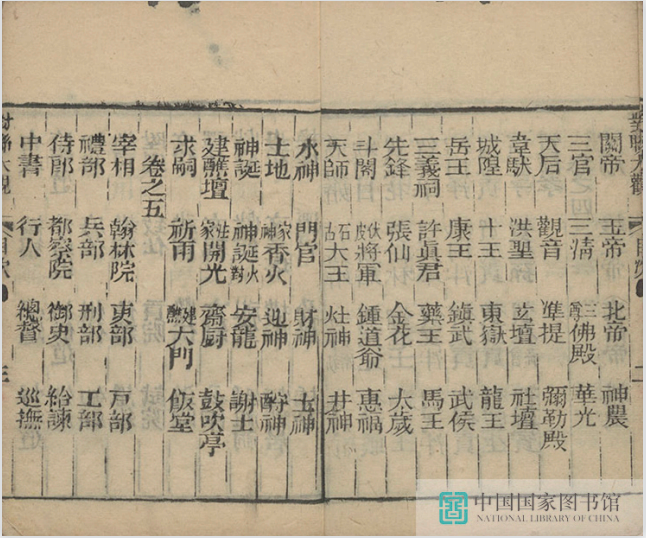 對聯大觀 目次 二
關帝 玉帝 北帝 神農
三官 三清 三尊佛殿 華光
天后 觀音 準提 彌勒殿
韋馱 洪聖 玄壇 社壇
城隍 十王 東嶽 龍王
岳王 康王 鎮武 武侯
三義祠 許眞君 藥王 馬王
先鋒 張仙 金花 太歲
斗閣 將軍 鍾道爺 惠福
天師 石古大王 灶神 井神
水神 門官 財神 土神
土地 家神香火 迎神 酧神
神誕 神誕對 安龍 謝土
建醮壇 開光 齋厨 鼓吹亭
求嗣 祈雨 大門 飯堂
卷之五
宰相 翰林院 吏部 戸部
禮部 兵部 刑部 工部
侍郎 都察院 御史 給諫
中書 行人 總督 巡撫
對聯大觀 目次 三
中国国家图书馆
NATIONAL LIBRARY OF CHINA